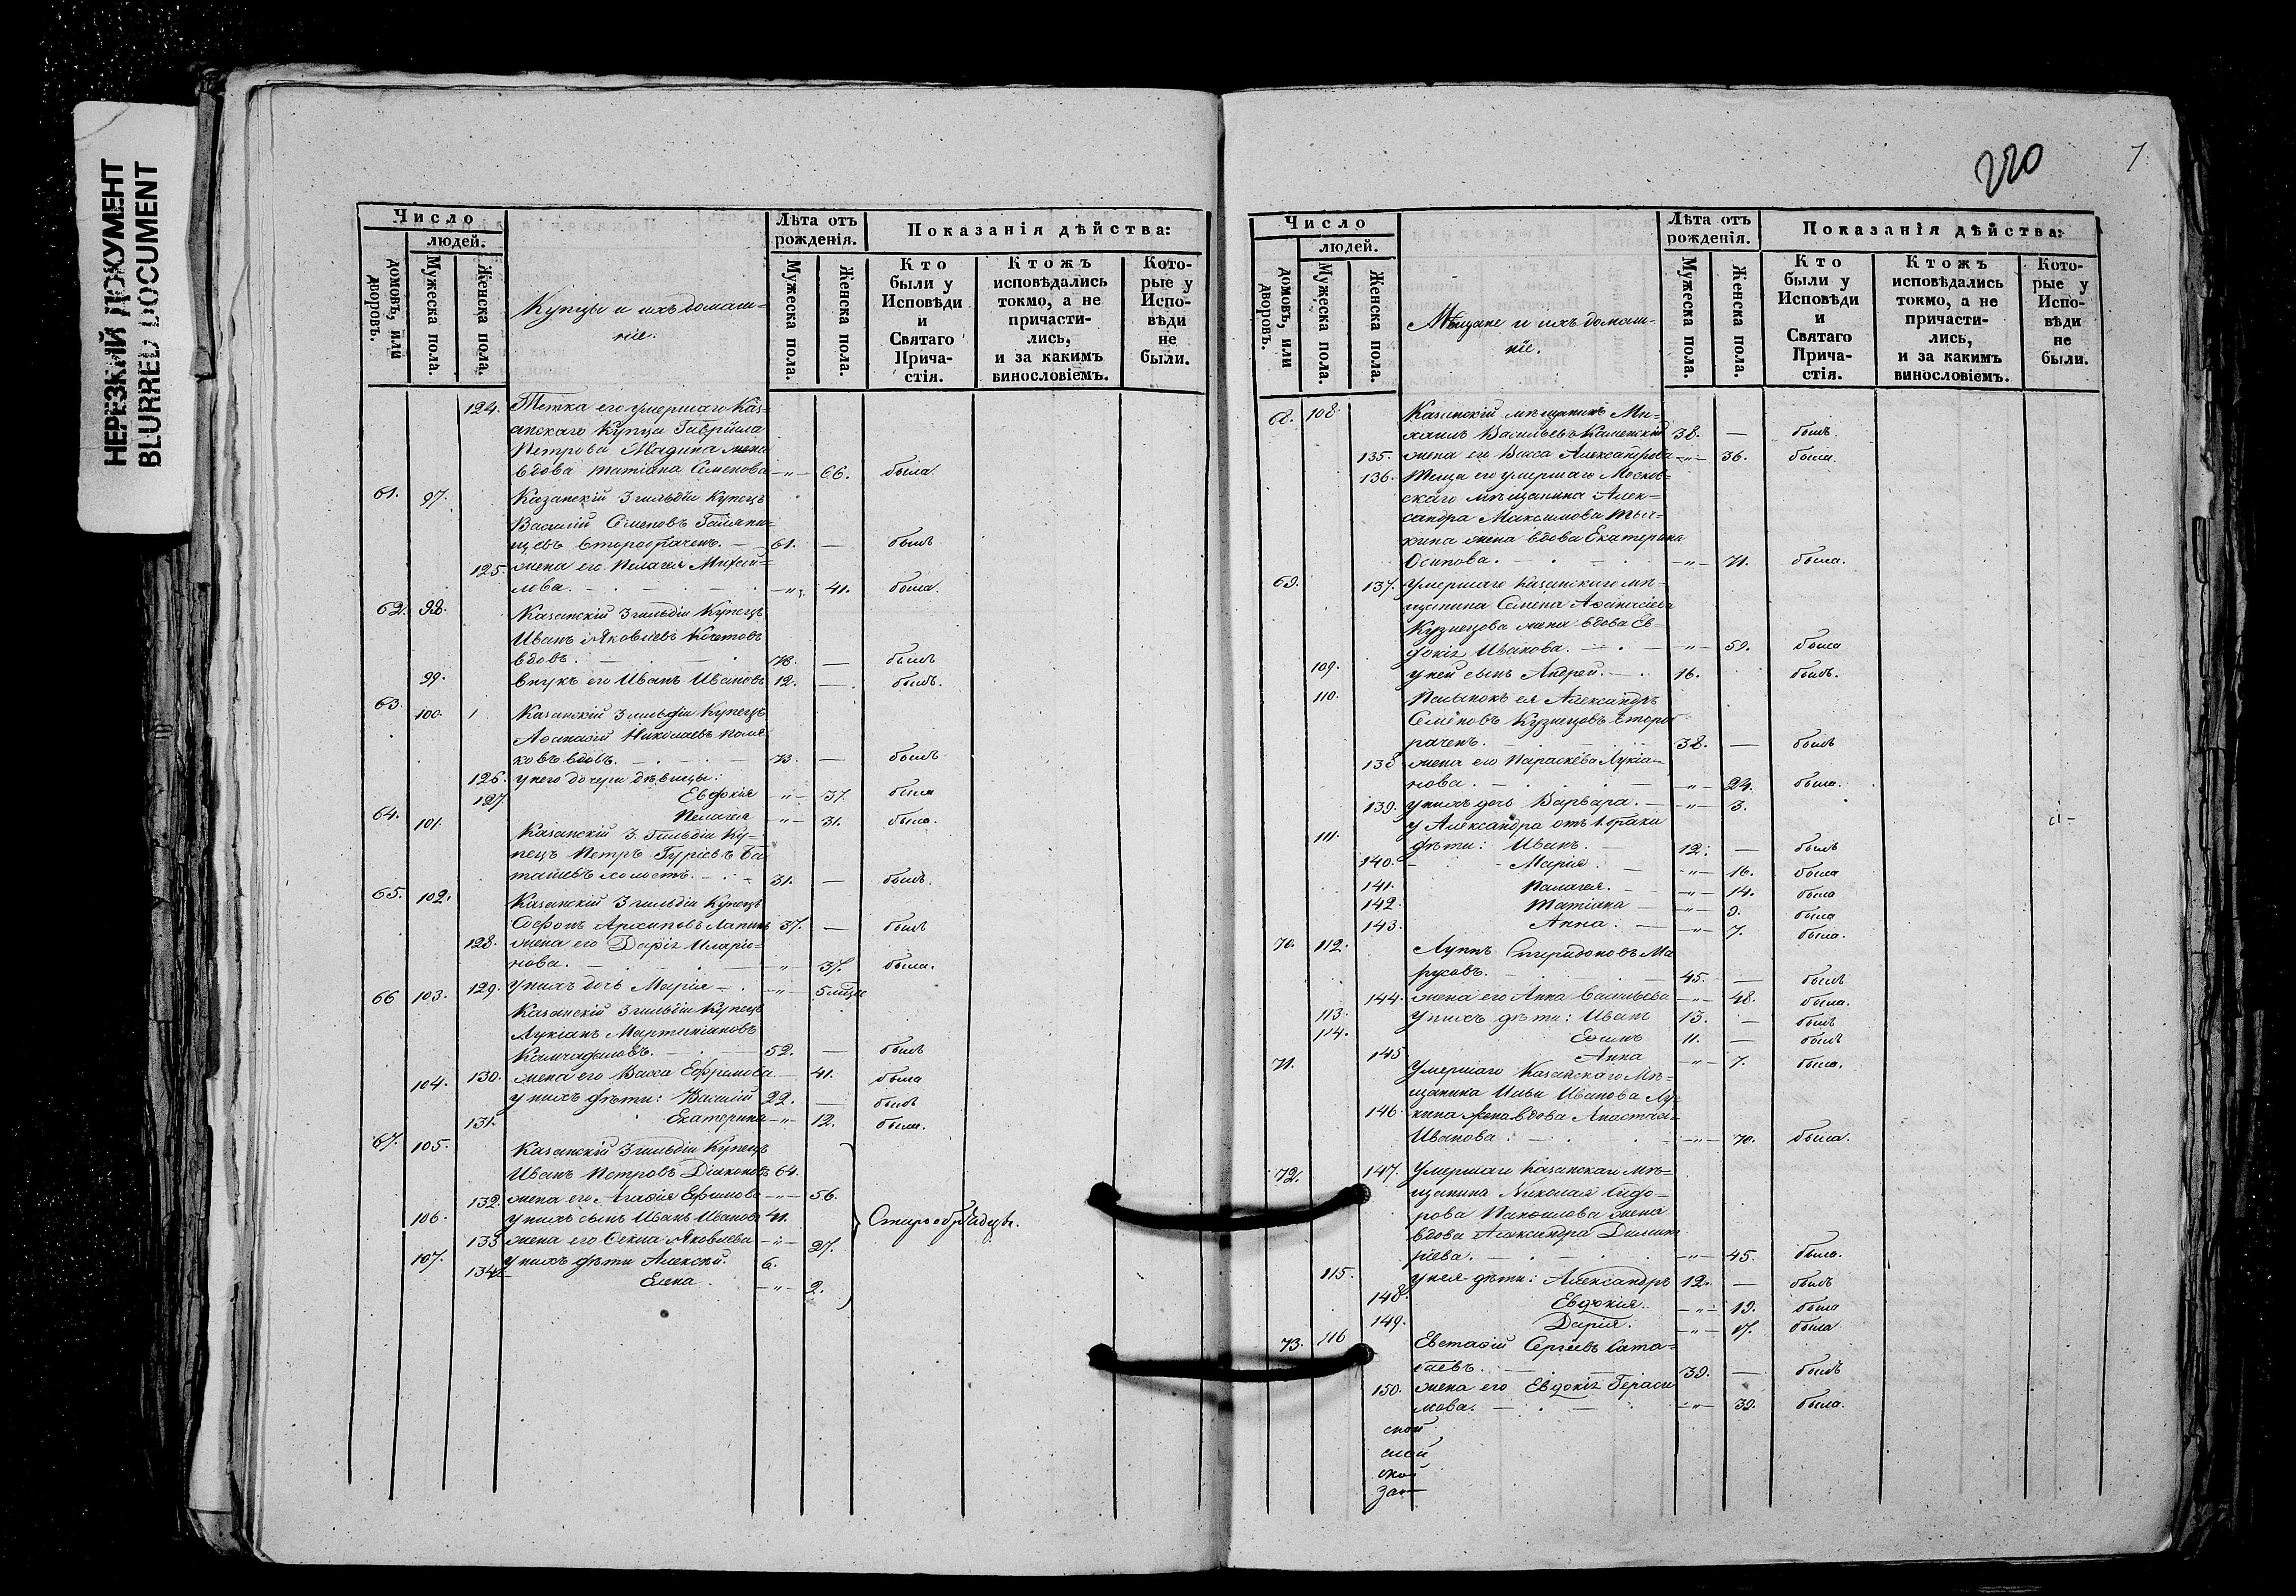 НЕРЕЗКИЙ ДОКУМЕНТ
BLURRED DOCUMENT
Число
людей.
домовъ, или дворовъ.
Мужеска пола.
Женска пола.
Купцы и ихъ домаш-
ніе.
Лѣта отъ рожденія.
Мужеска пола.
Женска пола.
Показанія дѣйства:
Кто были у Исповѣди и Святаго Прича-стія.
Ктожъ исповѣдались токмо, а не причасти-лись, и за какимъ винословіемъ.
Кото-рые у Испо-вѣди не были.
124. Тетка его умершаго Каз=
анскаго Купца Гавріила
Петрова жена
вдова Татіана Семенова — „ — 66. была
61. 97. Казанскій 3 гильдіи Купецъ
Василій Семеновъ
щевъ второбраченъ. — 61. — былъ
125. жена его Пелагея Михай=
лова. — „ — 41. была.
62. 98. Казанскій 3 гильдіи Купецъ
Иванъ Яковлевъ Кочетовъ
вдовъ. — 78. — былъ
99. внукъ его Иванъ Ивановъ 12. — былъ.
63. 100. Казанскій 3 гильдіи Купецъ
Аѳанасій Николаевъ Поля
ковъ вдовъ. — 73. — былъ
126. у него дочери дѣвицы:
127. Евдокія — „ — 37. была
Пелагея — „ — 31. была.
64. 101. Казанскій 3 гильдіи Ку=
пецъ Петръ Гуріевъ Ба
ташевъ холостъ. — 31. — былъ.
65. 102. Казанскій 3 гильдіи Купецъ
Софонъ Архиповъ Лапинъ 37. — былъ
128. жена его Дарія Иларіо=
нова. — „ — 37. была.
129. у нихъ дочь Марія — „ — 5 мцъ
66 103. Казанскій 3 гильдіи Купецъ
Лукіанъ Мартиніановъ
Камчадаловъ. — 52. — былъ
130. жена его Васса Ефремова — 41. была
104. у нихъ дѣти: Василій 22. — былъ
131. Екатерина — „ — 12. была.
67. 105. Казанскій 3 гильдіи Купецъ
Иванъ Петровъ Діаконовъ 64.
132. жена его Агафія Ефимова — „ — 56.
106. у нихъ сынъ Иванъ Ивановъ 41.
Старообрядцы.
133 жена его Ѳекла Яковлева — „ — 27.
107. у нихъ дѣти Алексѣй. 6.
134 Елена — „ — 2.
220
7
Число
людей.
домовъ, или дворовъ.
Мужеска пола.
Женска пола.
Мѣщане и ихъ домаш-
ніе.
Лѣта отъ рожденія.
Мужеска пола.
Женска пола.
Показанія дѣйства:
Кто были у Исповѣди и Святаго Прича-стія.
Ктожъ исповѣдались токмо, а не причасти-лись, и за какимъ винословіемъ.
Кото-рые у Испо-вѣди не были.
68. 108. Казанскій мѣщанинъ Ми=
хаилъ Васильевъ Каменскій 38. — былъ.
135. жена его Васса Александрова — „ — 36. была.
136. Теща его умершаго Москов=
скаго мѣщанина Алек=
сандра Максимова Тыч=
кина жена вдова Екатерина
Осипова. — „ — 71. была.
69. 137. Умершаго Казанскаго мѣ=
щанина Семена Аѳанасіева
Кузнецова жена вдова Ев=
докія Иванова. — „ — 59. была
109. у ней сынъ Андрей. — 16. былъ.
110. Пасынокъ ея Александръ
Семеновъ Кузнецовъ второб
раченъ. — 38. — былъ
138 жена его Параскева Лукіа=
нова. — „ — 24. была.
139. у нихъ дочь Варвара. — „ — 3.
у Александра отъ 1. брака
111. дѣти: Иванъ. — 12. — былъ
140. Марія — „ — 16. была
141. Палагея. — „ — 14. была
142. Татіана — „ — 9. была
143. Анна. — „ — 7. была.
70. 112. Луппъ Спиридоновъ Ма
русовъ. — 45. — былъ
144. жена его Анна Васильева — „ — 48. была.
113. у нихъ дѣти: Иванъ 13. — былъ
114. Ефимъ 11. — былъ
145 Анна — „ — 7. была.
71. Умершаго Казанскаго мѣ=
щанина Ильи Иванова Лу
146. кина жена вдова Анастасія
Иванова. — „ — 70. была.
72. 147. Умершаго Казанскаго мѣ=
щанина Николая Сидо=
рова жена
вдова Александра Димит
ріева. — „ — 45. была.
115. у нея дѣти: Александръ 12. — былъ
148. Евдокія. — „ — 19. была
149. Дарія. — „ — 17. была
73. 116 Евстафій Сергѣевъ Сата=
евъ. — 39. — былъ
150. жена его Евдокія Гераси
мова. — „ — 39. была.
ской
ской